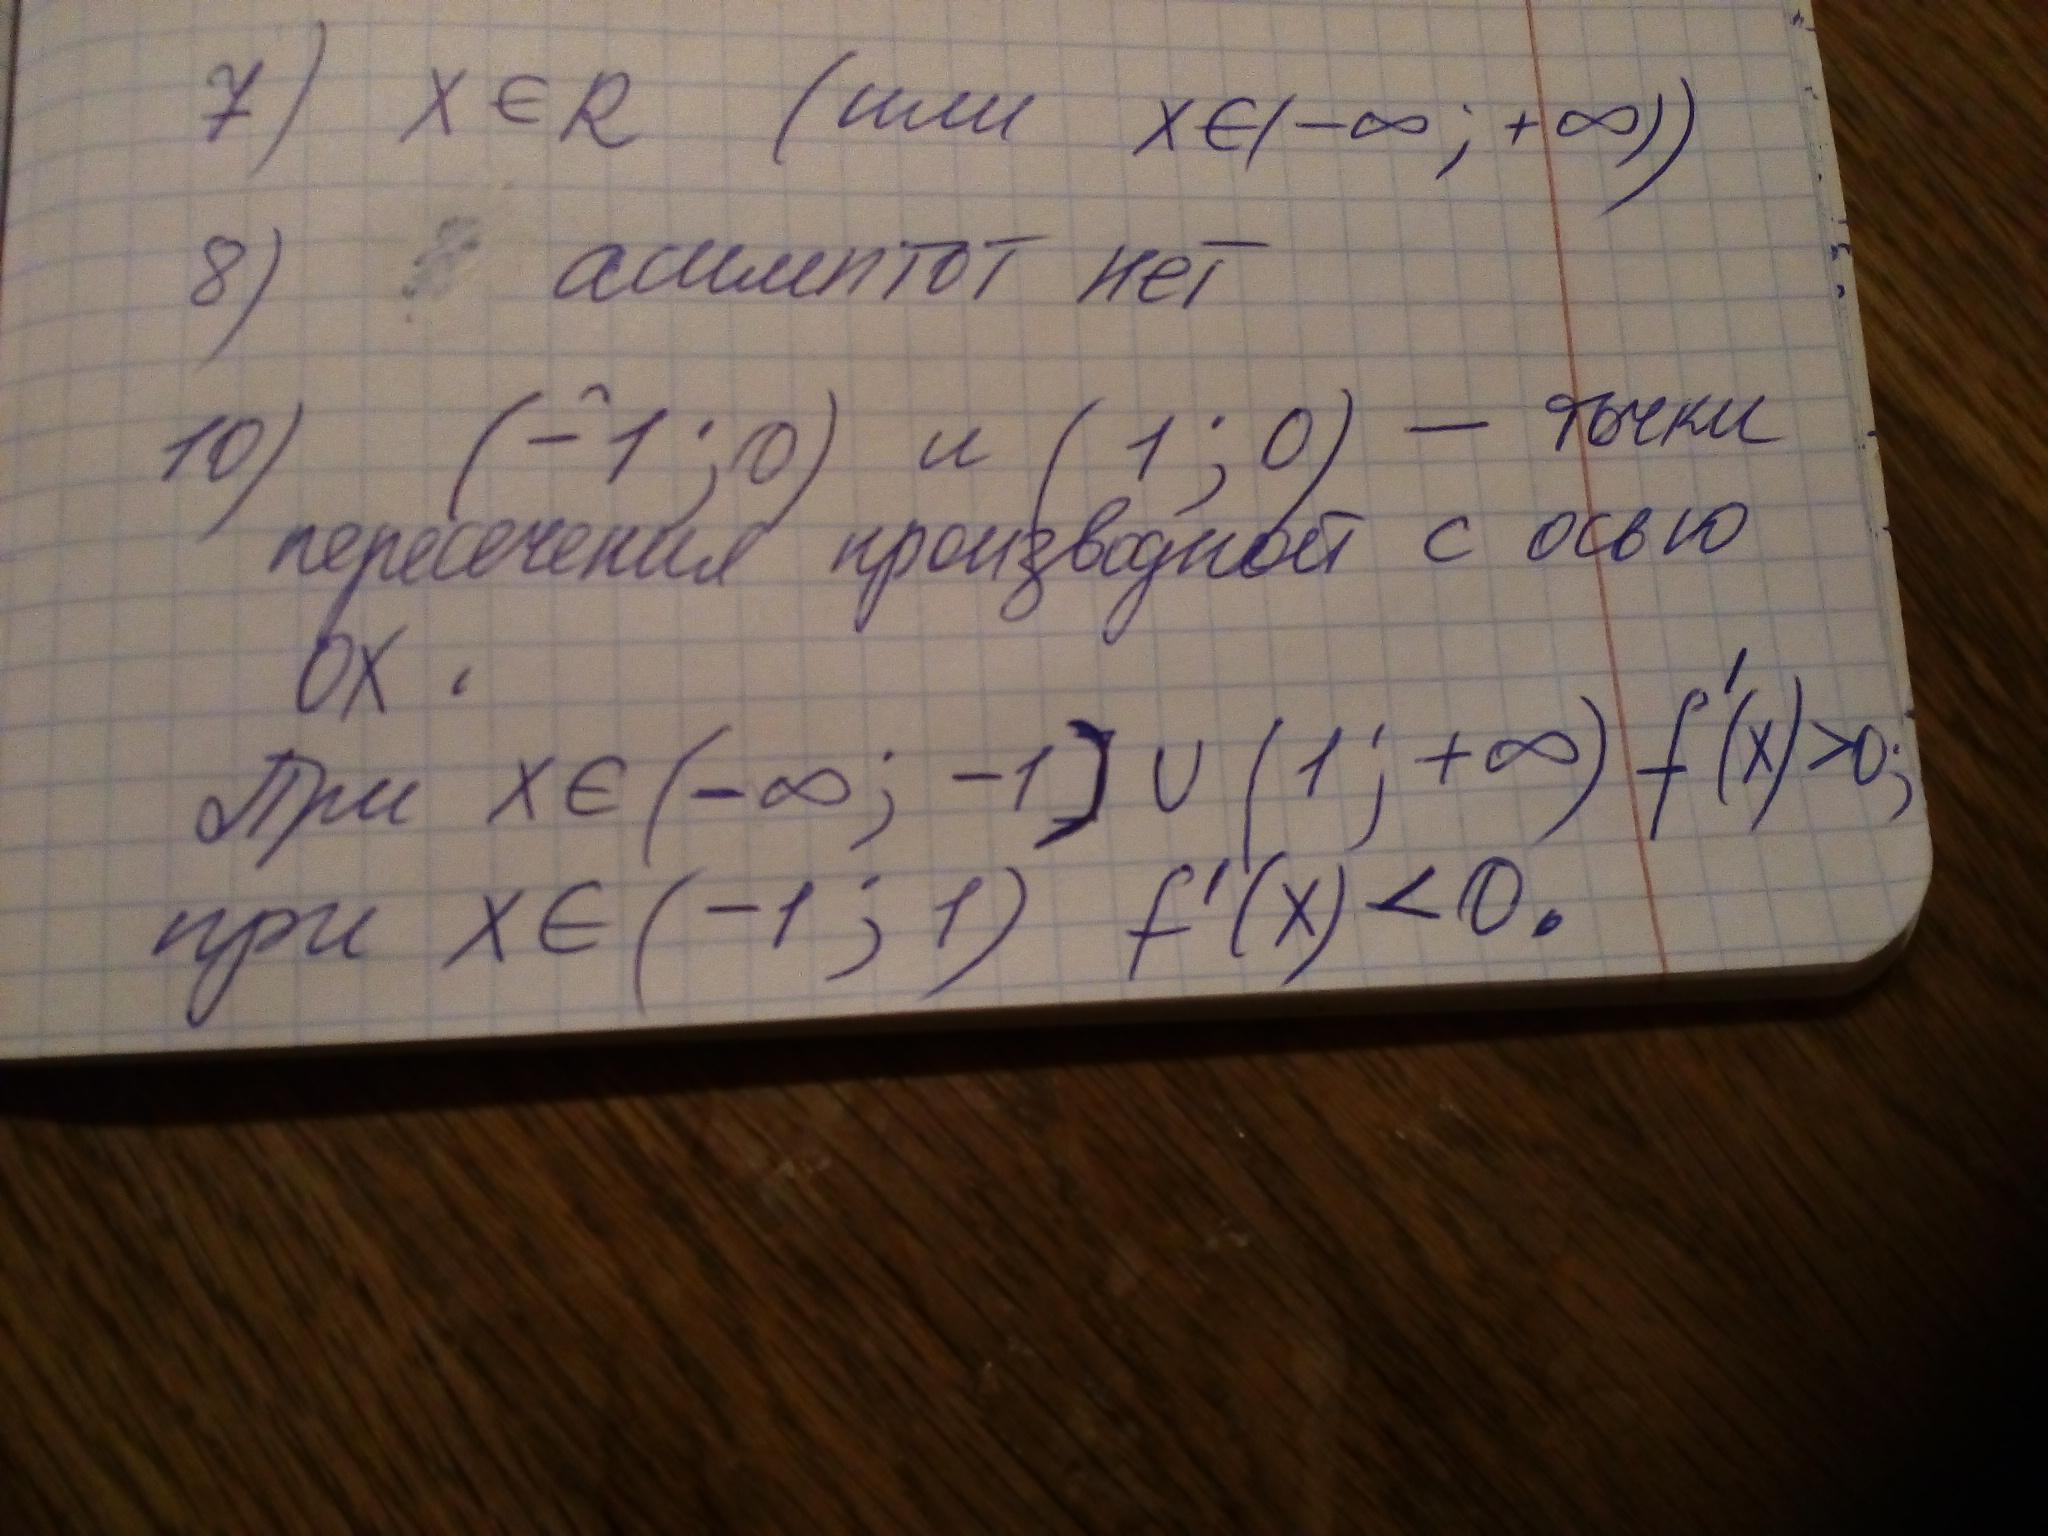 7) X∈R (или x∈(-∞; +∞))
8) асимптот нет
10) (-1; 0) и (1; 0) — точки
пересечения производной с осью
OX.
При x∈(-∞; -1] ∪ (1; +∞) f'(x)>0;
при x∈(-1; 1) f'(x)<0.